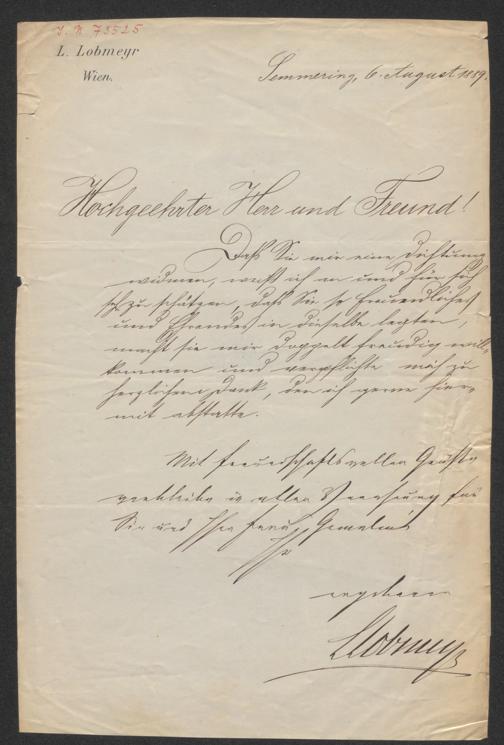 I. N. 73525
L. Lobmeyr
Wien.
Semmering, 6. August 1889.
Hochgeehrter Herr und Freund!
Daß Sie mir eine Dichtung
widmen, weiß ich an und für sich
schon zu schätzen, daß Sie so Freundliches
und Ehrendes in dieselbe legten,
macht sie mir doppelt freudig will-
kommen und verpflichtet mich zu
herzlichem Dank, den ich gerne hier-
mit abstatte.
Mit freundschaftsvollen Grüßen
verbleibe in aller Verehrung für
Sie und Ihre Frau Gemalin
Ihr
ergebener
LLobmeyr